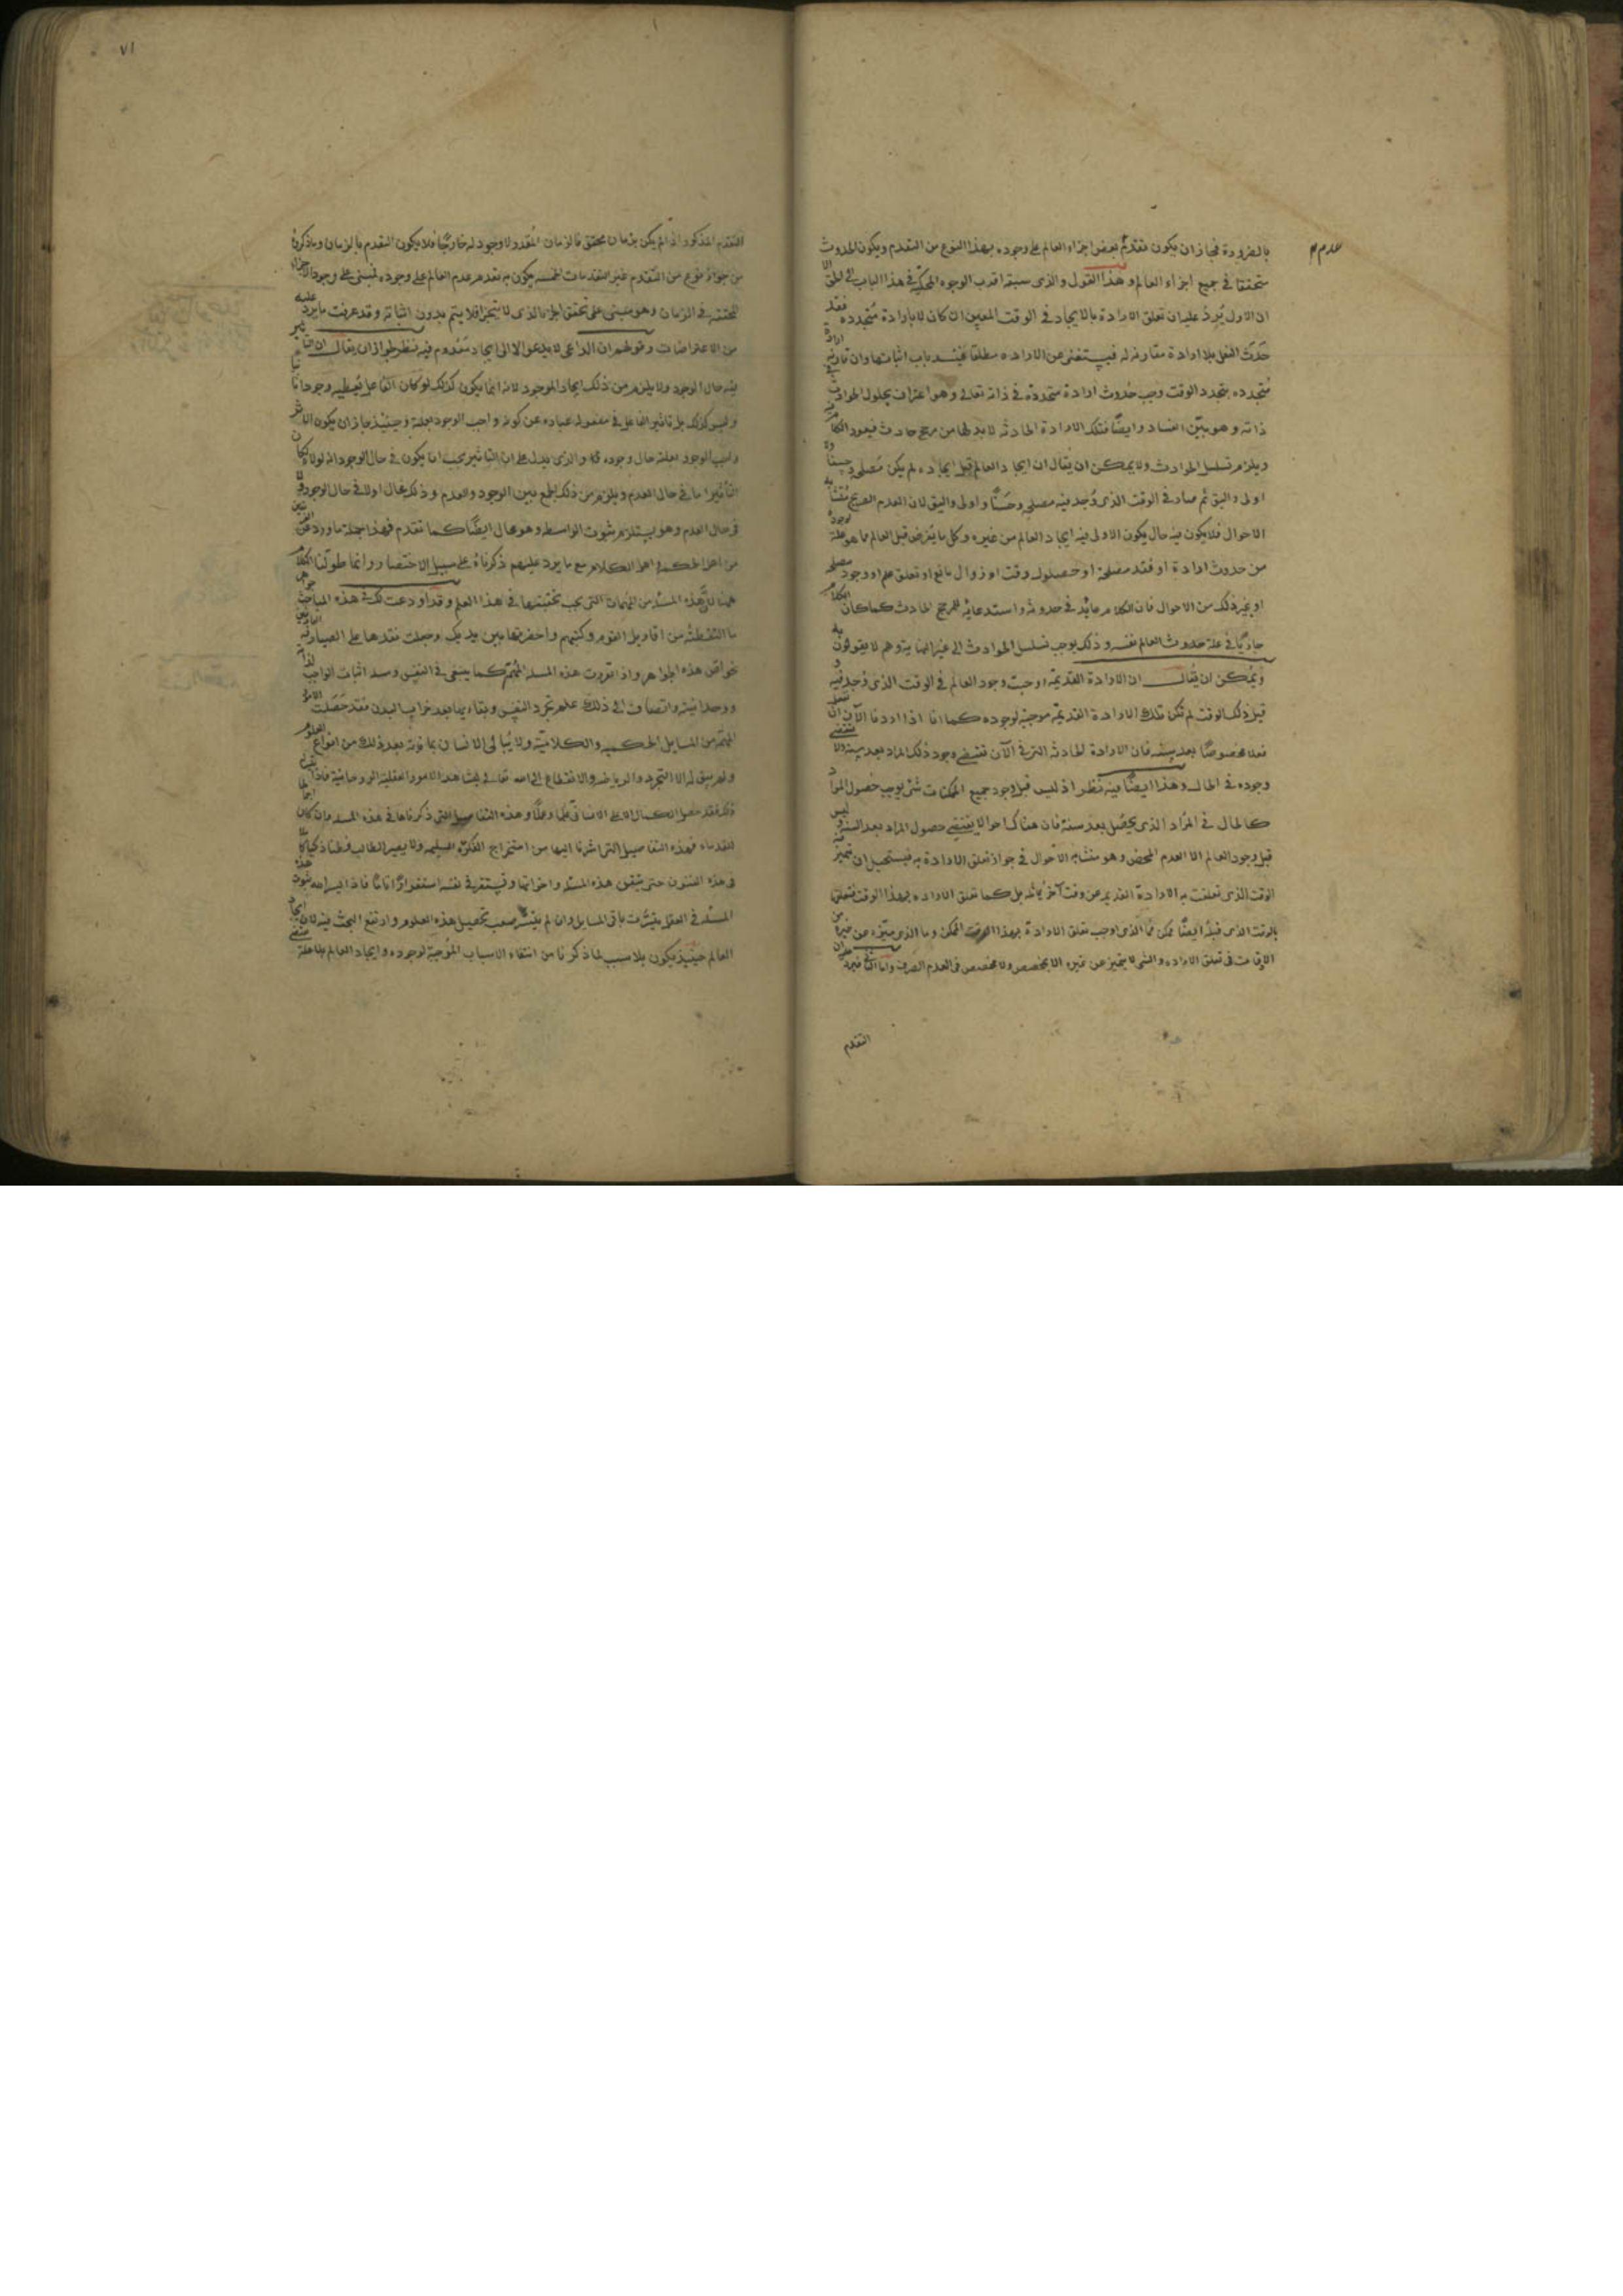 بالضرورة فجاز ان يكون تقدم بعض اجزاء العالم على وجوده بهذا النوع من التقدم ويكون الحدوث
عدم
متحققا في جميع اجزاء العالم وهذا القول والذى سبقه اقرب الوجوه المحكية في هذا الباب الى الحق الا
ان الاول يرد عليه ان تعلق الارادة بالايجاد في الوقت المعين ان كان لا بارادة متجددة فقد
حدث الفعل بلا ارادة مقارنة له فيستغنى عن الارادة مطلقا فينسد باب اثباتها وان قارنه ارادة
متجدده بتجدد الوقت وجب حدوث ارادة متجددة في ذاته تعالى وهو اعتراف بحلول الحوادث في
ذاته وهو بين الفساد وايضا فتلك الارادة الحادثه لا بد لها من مرجح حادث فيعود الكلام فيه
ويلزم تسلسل الحوادث ولا يمكن ان يقال ان ايجاد العالم قبل ايجاده لم يكن مصلحة وحسنا
اولى واليق ثم صار في الوقت الذى وجد فيه مصلحة وحسنا واولى واليق لان العدم الصريح متشابه
الاحوال فلا يكون فيه حال يكون الاولى فيه ايجاد العالم من غيره وكل ما يفرض قبل العالم مما هو علة لوجوده
من حدوث ارادة او فقد مصلحة او حصول وقت او زوال مانع او تعلق علم او وجود مصلحة
او غير ذلك من الاحوال فان الكلام عايد في حدوثه واستدعايه للمرجح الحادث كما كان الكلام
جاريا في علة حدوث العالم نفسه وذلك يوجب تسلسل الحوادث الى غير النهاية وهم لا يقولون به
ويمكن ان يقال ان الارادة القديمة اوجبت وجود العالم في الوقت الذى وجد فيه و
قبل ذلك الوقت لم تكن تلك الارادة القديمة موجبة لوجوده كما انا اذا اردنا الآن ان نفعل
فعلا مخصوصا بعد سنة فان الارادة الحادثه التى في الآن تقتضى وجود ذلك المراد بعد سنة ولا تقتضى
وجوده في الحال وهذا ايضا فيه نظر اذ ليس قبل وجود جميع الممكنات شئ يوجب حصول المراد
كالحال في المراد الذى يحصل بعد سنة فان هناك احوالا يقتضى حصول المراد بعد السنة وليس
قبل وجود العالم الا العدم المحض وهو متشابه الاحوال في جواز تعلق الارادة به فيستحيل ان يتميز فيه
الوقت الذى تعلقت به الارادة القديمه عن وقت آخر يماثله بل كما تعلق الارادة بهذا الوقت فتعلقها
بالوقت الذى قبله ايضا ممكن فما الذى اوجب تعلق الارادة بهذا الوقت الممكن وما الذى ميزه عن غيره من
الاوقات في تعلق الارادة والشئ لا يتميز عن غيره الا بمخصص ولا مخصص في العدم الصرف واما الثانى فيه ان
التقدم
٧١
التقدم المذكور اذا لم يكن بزمان محقق فالزمان المقدر لا وجود له خارجا فلا يكون التقدم بالزمان وما ذكروه
من جواز نوع من التقدم غير التقدمات الخمسه يكون به تقدم عدم العالم على وجوده فمبنى على وجود الاجزاء
المحققه في الزمان وهو مبنى على تحقق الجزء الذى لا يتجزا فلا يتم بدون اثباته وقد عرفت ما يرد عليه
من الاعتراضات وقولهم ان الداعى لا يدعو الا الى ايجاد معدوم فيه نظر لجواز ان يقال ان التاثير
فيه حال الوجود ولا يلزم من ذلك ايجاد الموجود لانه انما يكون كذلك لو كان الفاعل يعطيه وجودا ثانيا
وليس كذلك بل تاثير الفاعل في مفعوله عباره عن كونه واجب الوجود بعلته وحينئذ جاز ان يكون الاثر
واجب الوجود بعلته حال وجوده والذى يدل على ان التاثير يجب ان يكون في حال الوجود انه لولاه لكان
التاثير اما في حال العدم ويلزم من ذلك الجمع بين الوجود والعدم وذلك محال او لا في حال الوجود ولا
في حال العدم وهو يستلزم ثبوت الواسطه وهو محال ايضا كما تقدم فهذا جملة ما ورد عن الفريقين
من اهل الحكمه واهل الكلام مع ما يرد عليهم ذكرناه على سبيل الاختصار وانما طولنا الكلام
ههنا لان هذه المسئله من المهمات التى يجب تحقيقها في هذا العلم وقد اودعت لك في هذه المباحث جواهر
ما التقطته من اقاويل القوم وكتبهم واحضرتها بين يديك وجعلت نقدها على الصيارفة العارفين
بخواص هذه الجواهر واذا تقررت هذه المسئلة المهمة كما ينبغى في النفس ومسئلة اثبات الواجب لذاته
ووحدانيته وانضاف الى ذلك علم تجرد النفس وبقاءها بعد خراب البدن فقد حصلت الامور
المهمة من المسايل الحكميه والكلامية ولا يبالى الانسان بما فاته بعد ذلك من انواع العلوم
ولم يبق له الا التجرد والرياضه والانقطاع الى الله تعالى ليشاهد الامور العقلية الروحانية فاذا تقرر
ذلك فقد حصل الكمال الاعلى الانسانى علما وعملا وهذه التفاصيل التى ذكرناها في هذه المسئله وان كان اجمالها
للقدماء فهذه التفاصيل التى اشرنا اليها من استخراج الفكرة السليمه ولا يصير الطالب فطنا ذكيا كاملا
في هذه الفنون حتى يتقن هذه المسئله واخواتها ويستقر في نفسه استقرارا تاما فاذا يسر الله ثبوت هذه
المسئله في العقل تيسرت باقى المسايل وان لم يتيسر صعب تحصيل هذه العلوم وارتفع البحث فيه لان ايجاد
العالم حينئذ يكون بلا سبب لما ذكرنا من انتفاء الاسباب الموجبة لوجوده وايجاد العالم بلا علة مقتضى